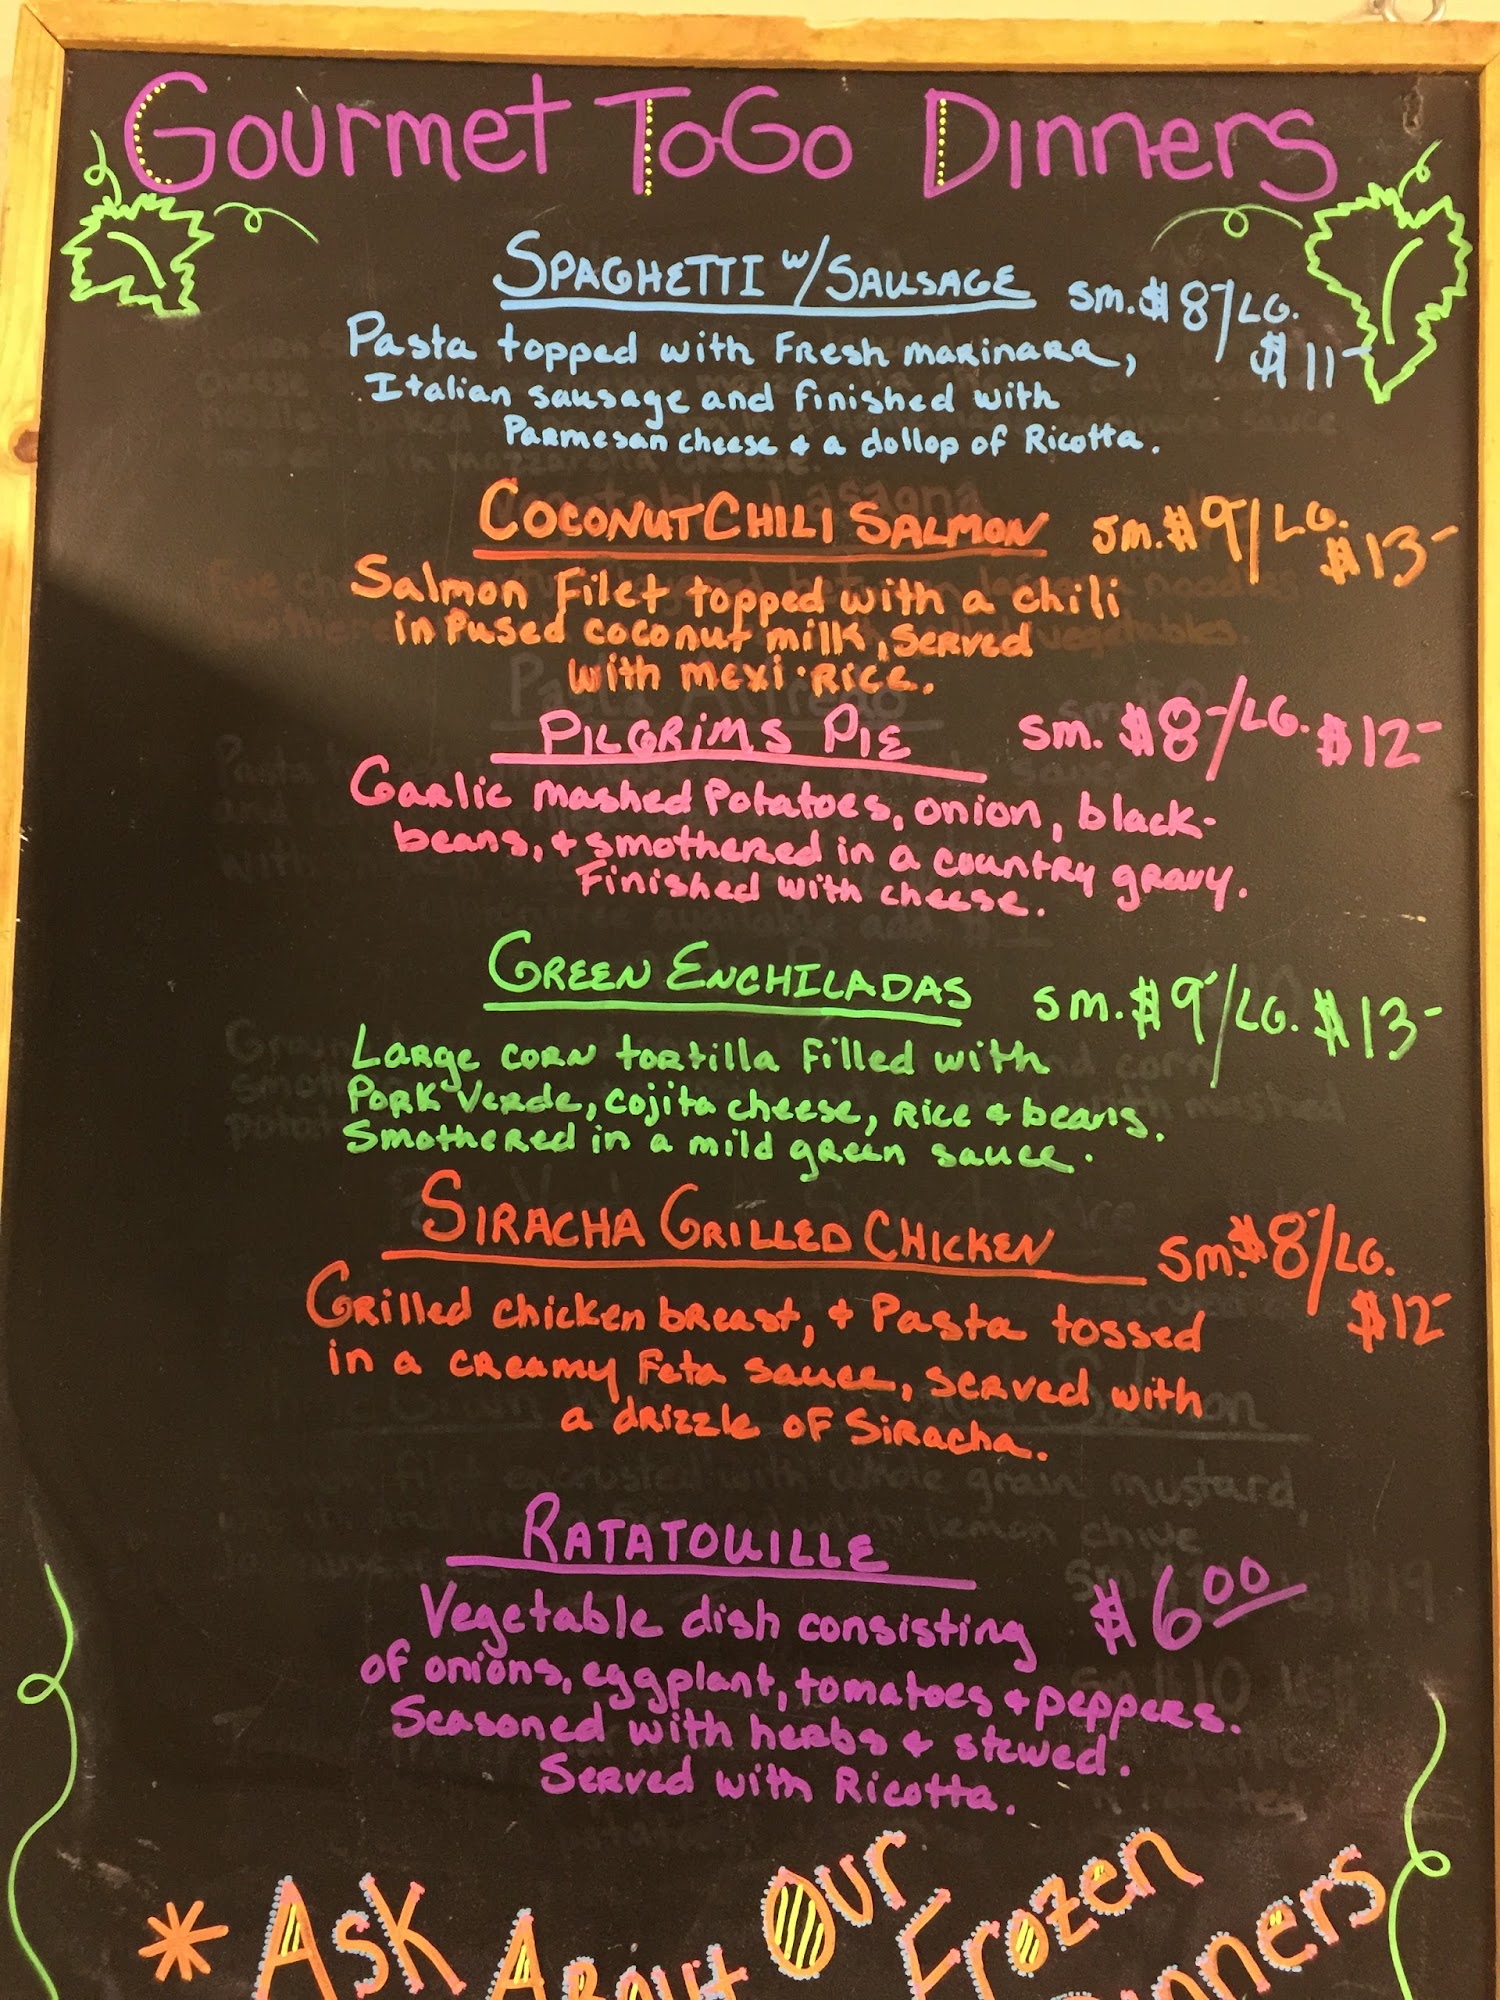 Gourmet ToGo Dinners
SPAGHETTI w/SAUSAGE sm. $8-/LG. $11-
Pasta topped with Fresh marinara,
Italian sausage and finished with
Parmesan cheese & a dollop of Ricotta.
COCONUT CHILI SALMON sm. $9-/LG. $13-
Salmon Filet topped with a chili
in Pused coconut milk, served
with mexi-Rice.
PILGRIMS PIE sm. $8-/LG. $12-
Garlic mashed Potatoes, onion, black-
beans, & smothered in a country gravy.
Finished with cheese.
GREEN ENCHILADAS sm. $9-/LG. $13-
Large corn tortilla filled with
Pork Verde, cojita cheese, rice & beans.
Smothered in a mild green sauce.
SIRACHA GRILLED CHICKEN sm. $8-/LG. $12-
Grilled chicken breast, & Pasta tossed
in a creamy Feta sauce, served with
a drizzle of Siracha.
RATATOUILLE
$6.00
Vegetable dish consisting
of onions, eggplant, tomatoes & peppers.
Seasoned with herbs & stewed.
Served with Ricotta.
*Ask About Our Frozen Dinners